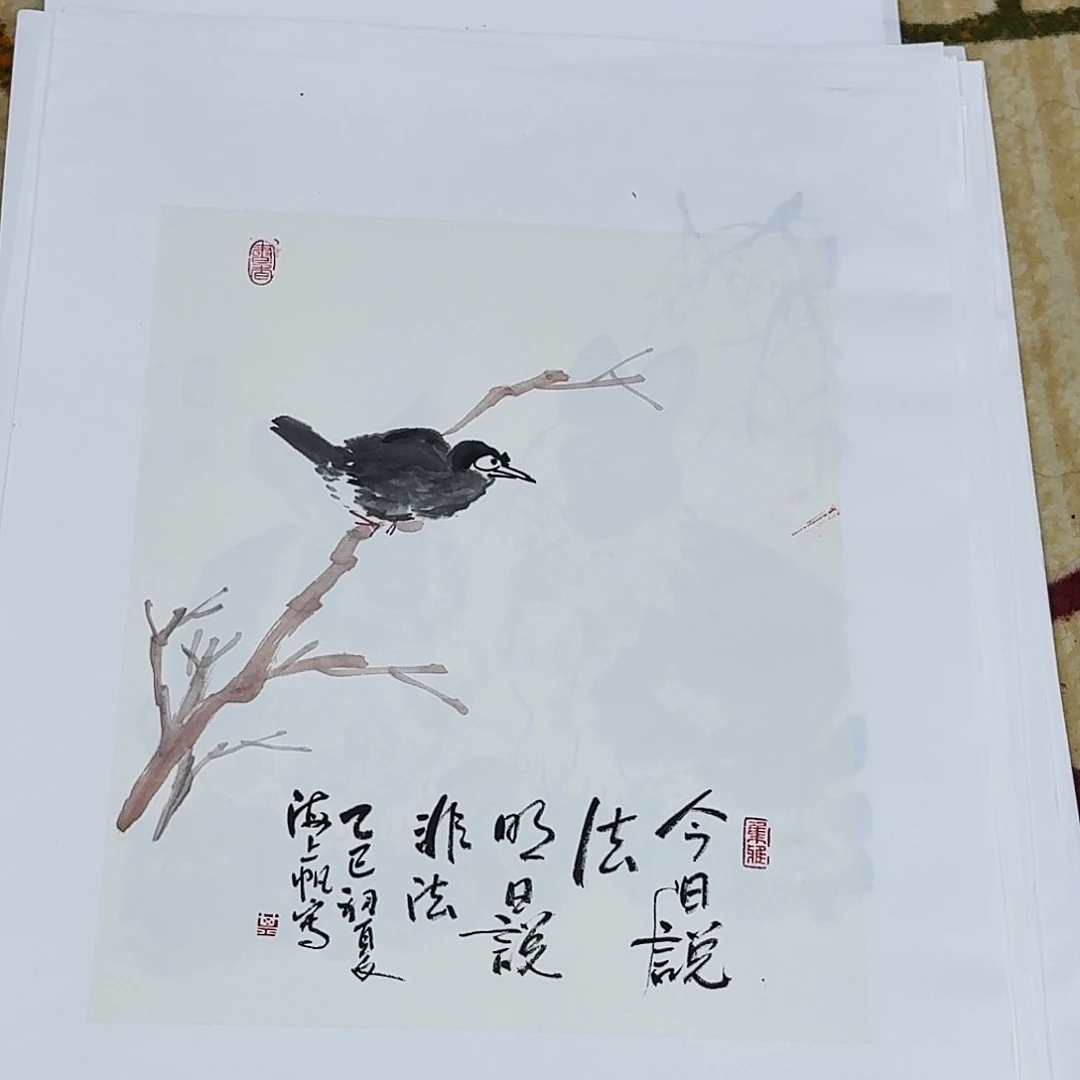 今日說
法
明日說
非法
乙巳初夏
海上帆寫
集雅
書香